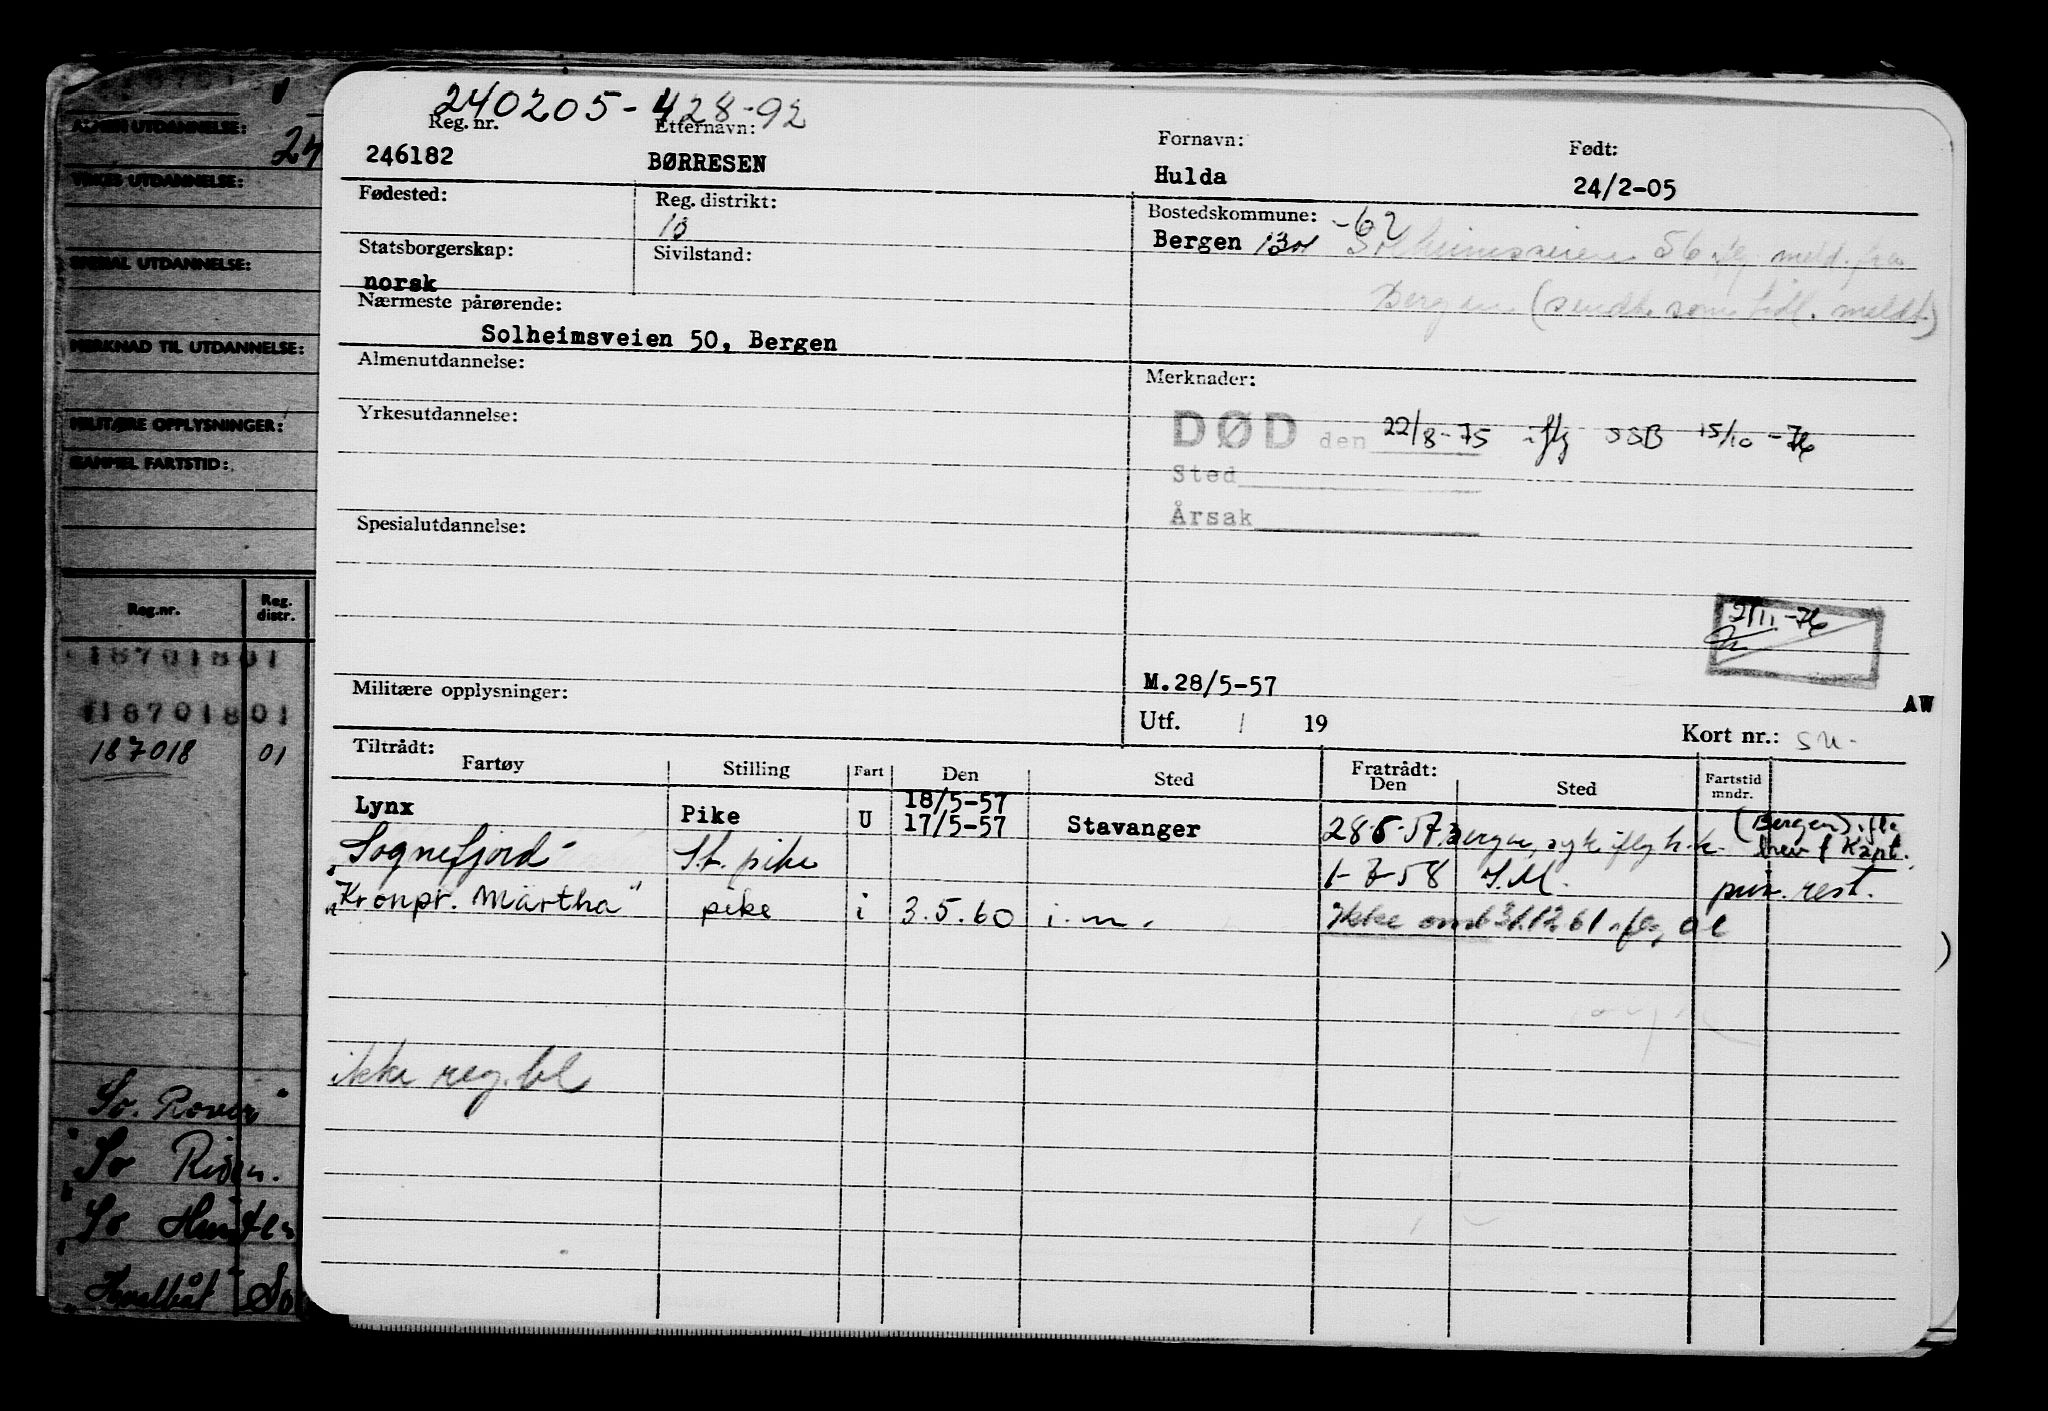 240205-428-92
Reg. nr. Etternavn: Fornavn: Født:
246182 BØRRESEN Hulda 24/2-05
Fødested: Reg. distrikt: Bostedskommune: -62
13 Bergen 1301 Solheimsveien 56 iflg meld. fra
Statsborgerskap: Sivilstand:
norsk Bergen (sendt som tidl. meldt)
Nærmeste pårørende:
Solheimsveien 50, Bergen
Almenutdannelse: Merknader:
Yrkesutdannelse: DØD den 22/8-75 iflg SSB 15/10-76
Sted
Årsak
Spesialutdannelse:
2/11-76
Militære opplysninger: M.28/5-57
AW
Utf. / 19 Kort nr.:
Tiltrådt: Fratrådt:
Fartøy Stilling Fart Den Sted Den Sted Fartstid mndr.
18/5-57
Lynx Pike U 17/5-57 Stavanger 28-5-57 Bergen, syk iflg h.k. (Bergen) ifl.
brev f Kapt.
"Sognefjord" St. pike 1-7-58 I.M. pun. rest.
"Kronpr. Märtha" pike i 3.5.60 i.m. Ikke omb 31.12.61 ifl. OL
ikke reg. bl
ALMEN UTDANNELSE:
24
YRKES UTDANNELSE:
SPESIAL UTDANNELSE:
MERKNAD TIL UTDANNELSE:
MILITÆRE OPPLYSNINGER:
GAMMEL FARTSTID:
Reg.nr. Reg. distr.
18701801
18701801
187018 01
So. Rover"
"So
"So